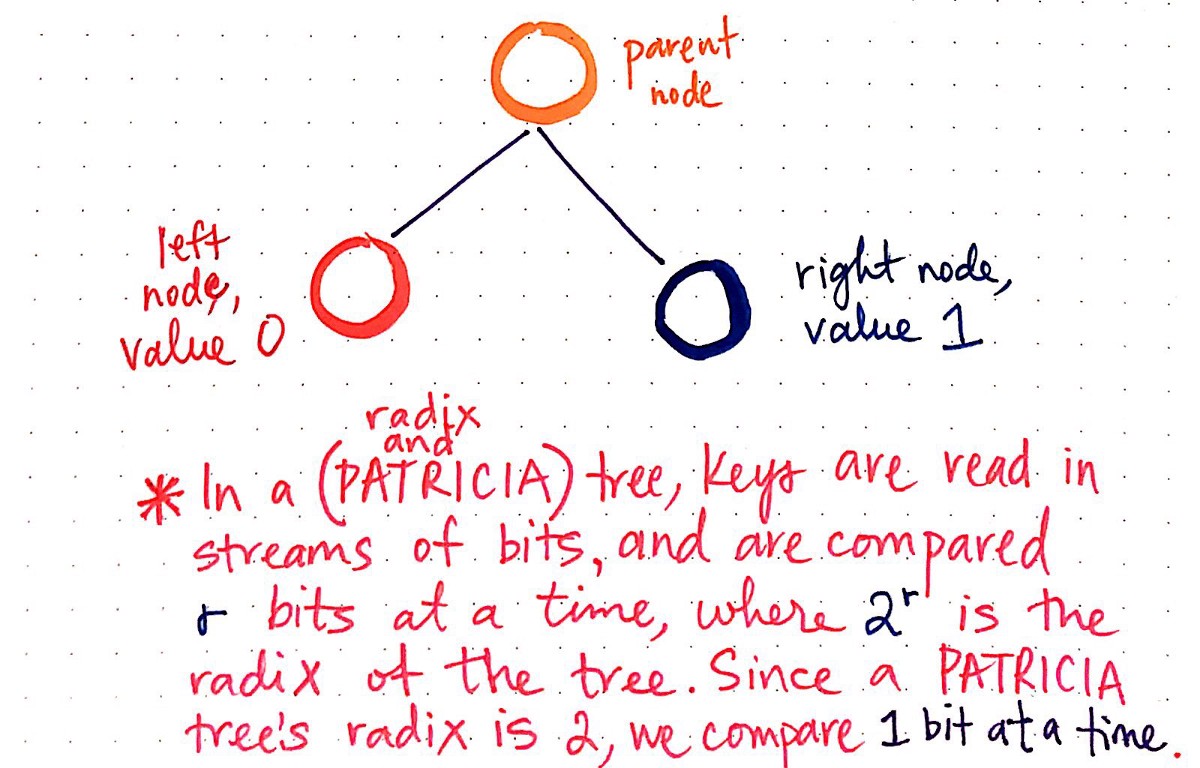 parent
node
left
node,
value 0
right node,
value 1
radix
and
* In a (PATRICIA) tree, keys are read in
streams of bits, and are compared
r bits at a time, where 2ʳ is the
radix of the tree. Since a PATRICIA
tree's radix is 2, we compare 1 bit at a time.